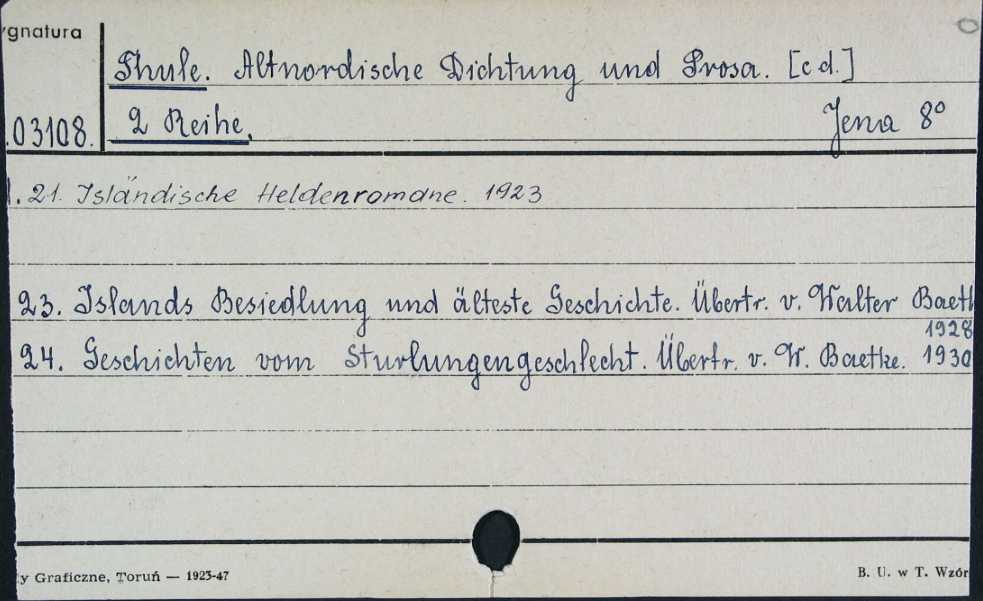 ygnatura
Thule. Altnordische Dichtung und Prosa. [c d.]
03108. 2 Reihe. Jena 8°
21. Isländische Heldenromane. 1923
23. Islands Besiedlung und älteste Geschichte. Übertr. v. Walter Baetk
1928
24. Geschichten vom Sturlungengeschlecht. Übertr. v. W. Baetke. 1930
y Graficzne, Toruń — 1923-47 B. U. w T. Wzór